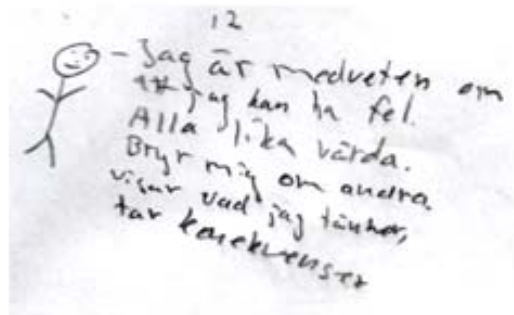 12
- Jag är medveten om
att jag kan ha fel.
Alla lika värda.
Bryr mig om andra.
visar vad jag tänker,
tar konsekvenser